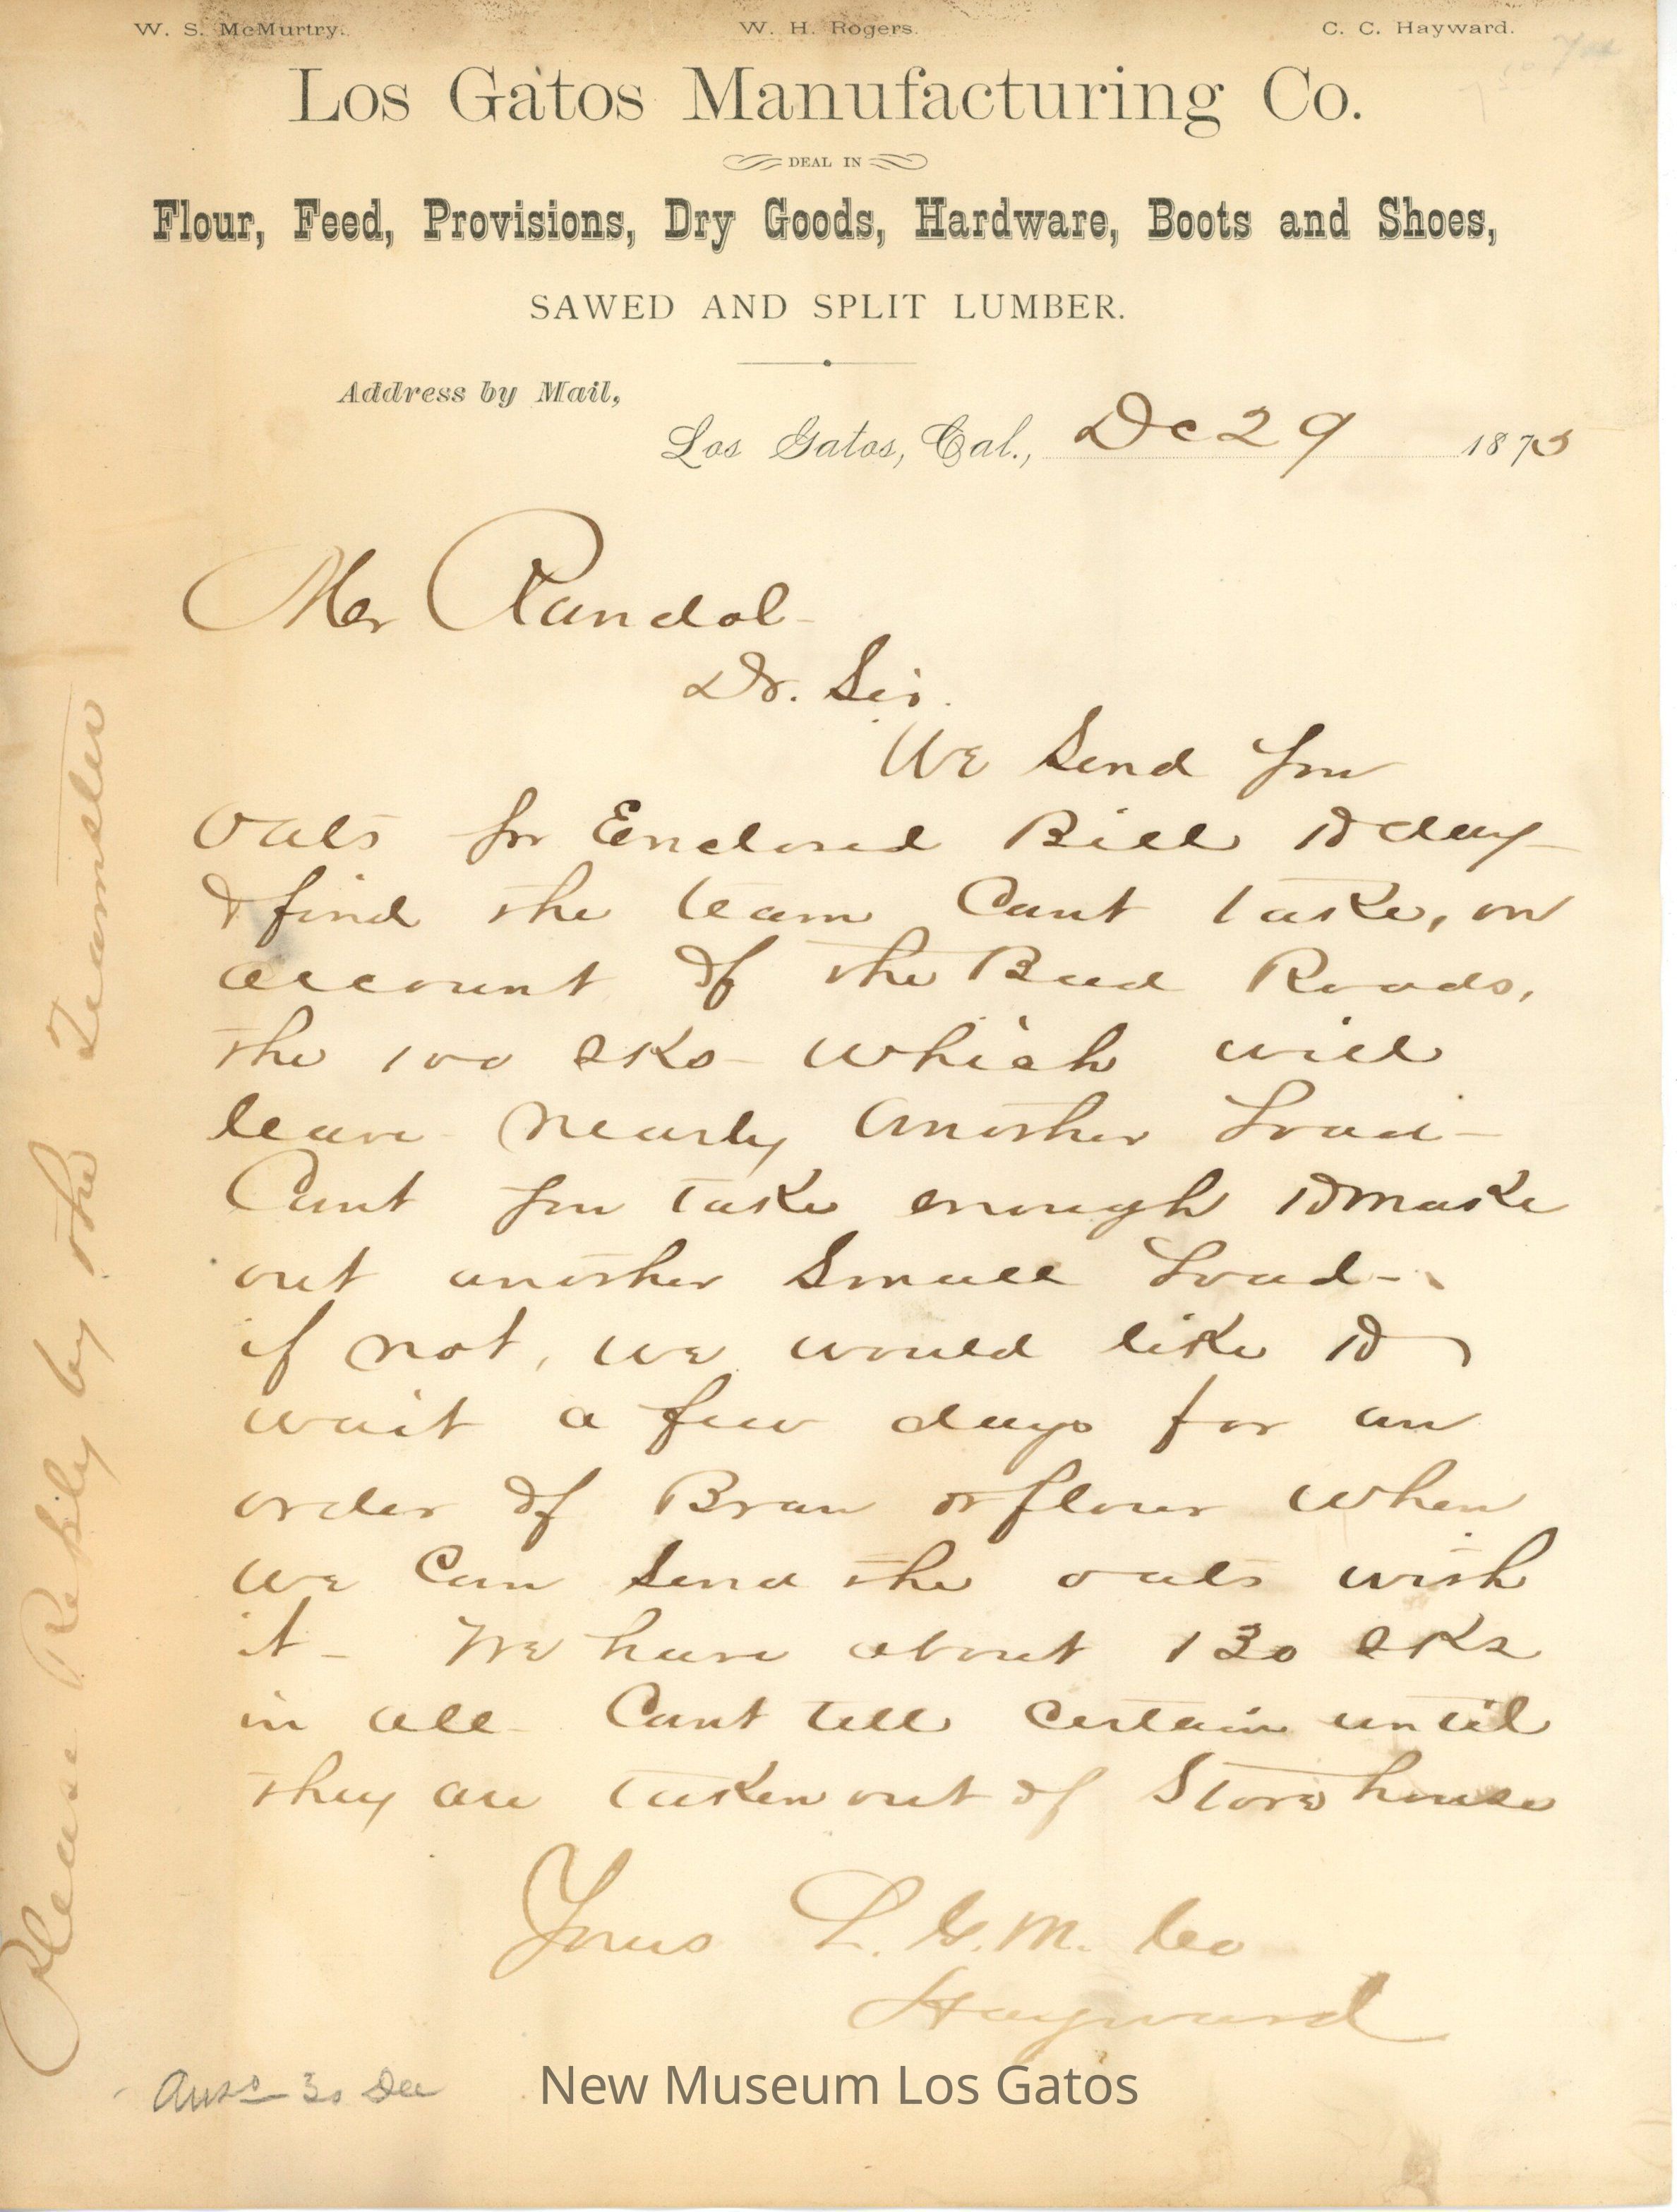 W. S. McMurtry. W. H. Rogers. C. C. Hayward.
Los Gatos Manufacturing Co.
DEAL IN
Flour, Feed, Provisions, Dry Goods, Hardware, Boots and Shoes,
SAWED AND SPLIT LUMBER.
Address by Mail,
Los Gatos, Cal., Dc 29 1875
Mr Randol
Dr. Sir.
We Send you
Oats for Enclosed Bill to day
& find the team Cant take, on
account of the Bad Roads,
the 100 sks which will
leave nearly Another Load -
Cant you take enough to make
out another Small Load -
if not, we would like to
wait a few days for an
order of Bran or flour when
we Can Send the oats with
it - We have about 130 sks
in all Cant tell certain until
they are taken out of Store house
Yours L. G. M. Co
Hayward
Please Reply by the Teamster
Ansd 30 Dec
New Museum Los Gatos